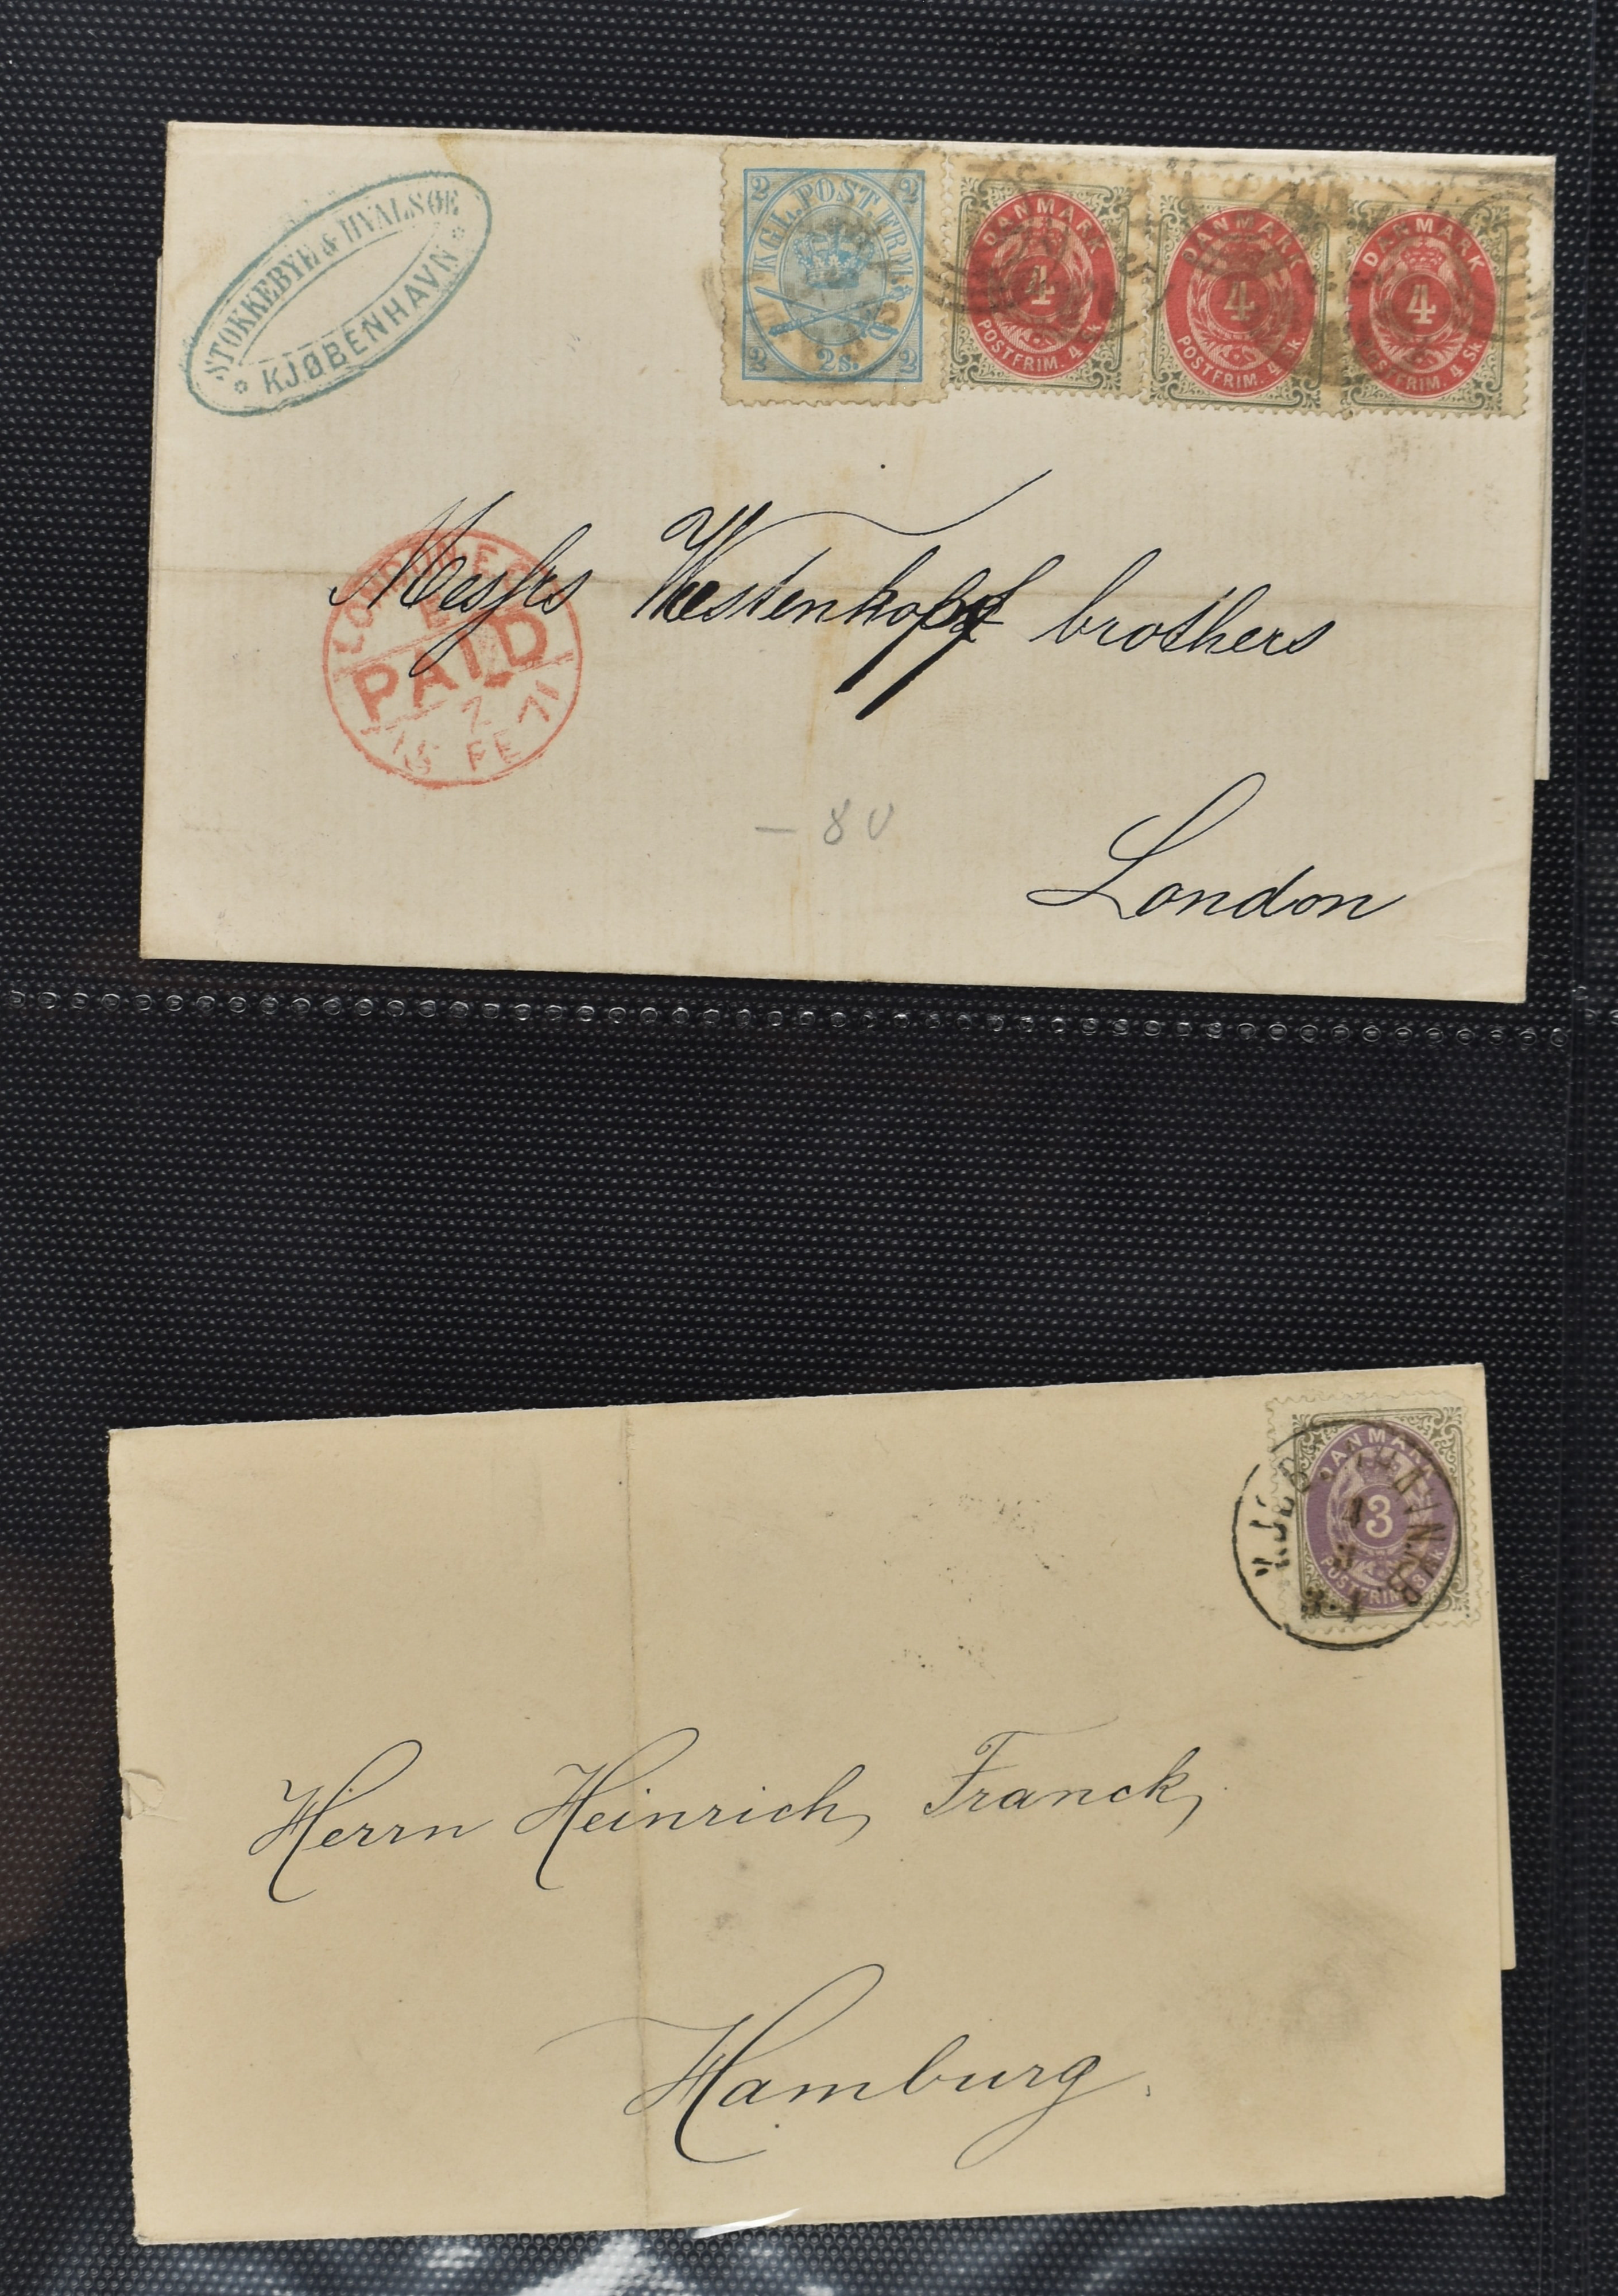 STOKKEBYE & HVALSØE
KJØBENHAVN
2 2
KGL. POST. FRM.
2 2s. 2
DANMARK
4
POSTFRIM. 4 Sk
DANMARK
4
POSTFRIM. 4 Sk
DANMARK
4
POSTFRIM. 4 Sk
Messrs Westenkopf brothers
PAID
FE 71
— 80
London
DANMARK
3
POSTFRIM. 3 Sk
Herrn Heinrich Franck,
Hamburg.